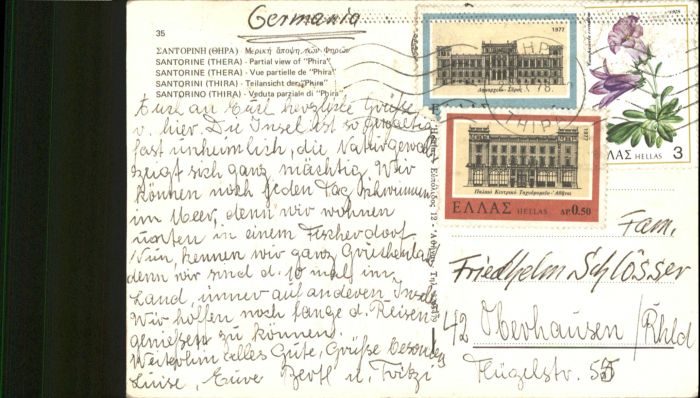 Germania
35
ΣΑΝΤΟΡΙΝΗ (ΘΗΡΑ) - Μερική άποψη τών Φηρών
SANTORINE (THERA) - Partial view of "Phira"
SANTORINE (THERA) - Vue partielle de "Phira"
SANTORINI (THIRA) - Teilansicht der "Phira"
SANTORINO (THIRA) - Veduta parziale di "Phira"
Euch an Eurl herzliche Grüße
v. hier. Die Insel ist so gewaltig
fast unheimlich, die Naturgewalt
zeigt sich ganz mächtig. Wir
können noch jeden Tag schwimmen
im Meer, denn wir wohnen
unten in einem Fischerdorf
Nun, kennen wir ganz Griechenla
denn wir sind d. 10 mal im
Land, immer auf anderen Inseln
Wir hoffen noch lange d. Reisen
genießen zu können.
Weiterhin alles Gute, Grüße besonders
Luise, Eure Bertl u. Fritzi
1977
Δημαρχείο - Σύρος
ΕΛΛΑΣ HELLAS 3
1977
Παλαιό Κεντρικό Ταχυδρομείο - Αθήνα
ΕΛΛΑΣ HELLAS ΔΡ. 0.50
78
Fam.
Friedhelm Schlösser
42 Oberhausen / Rhld
Flügelstr. 55